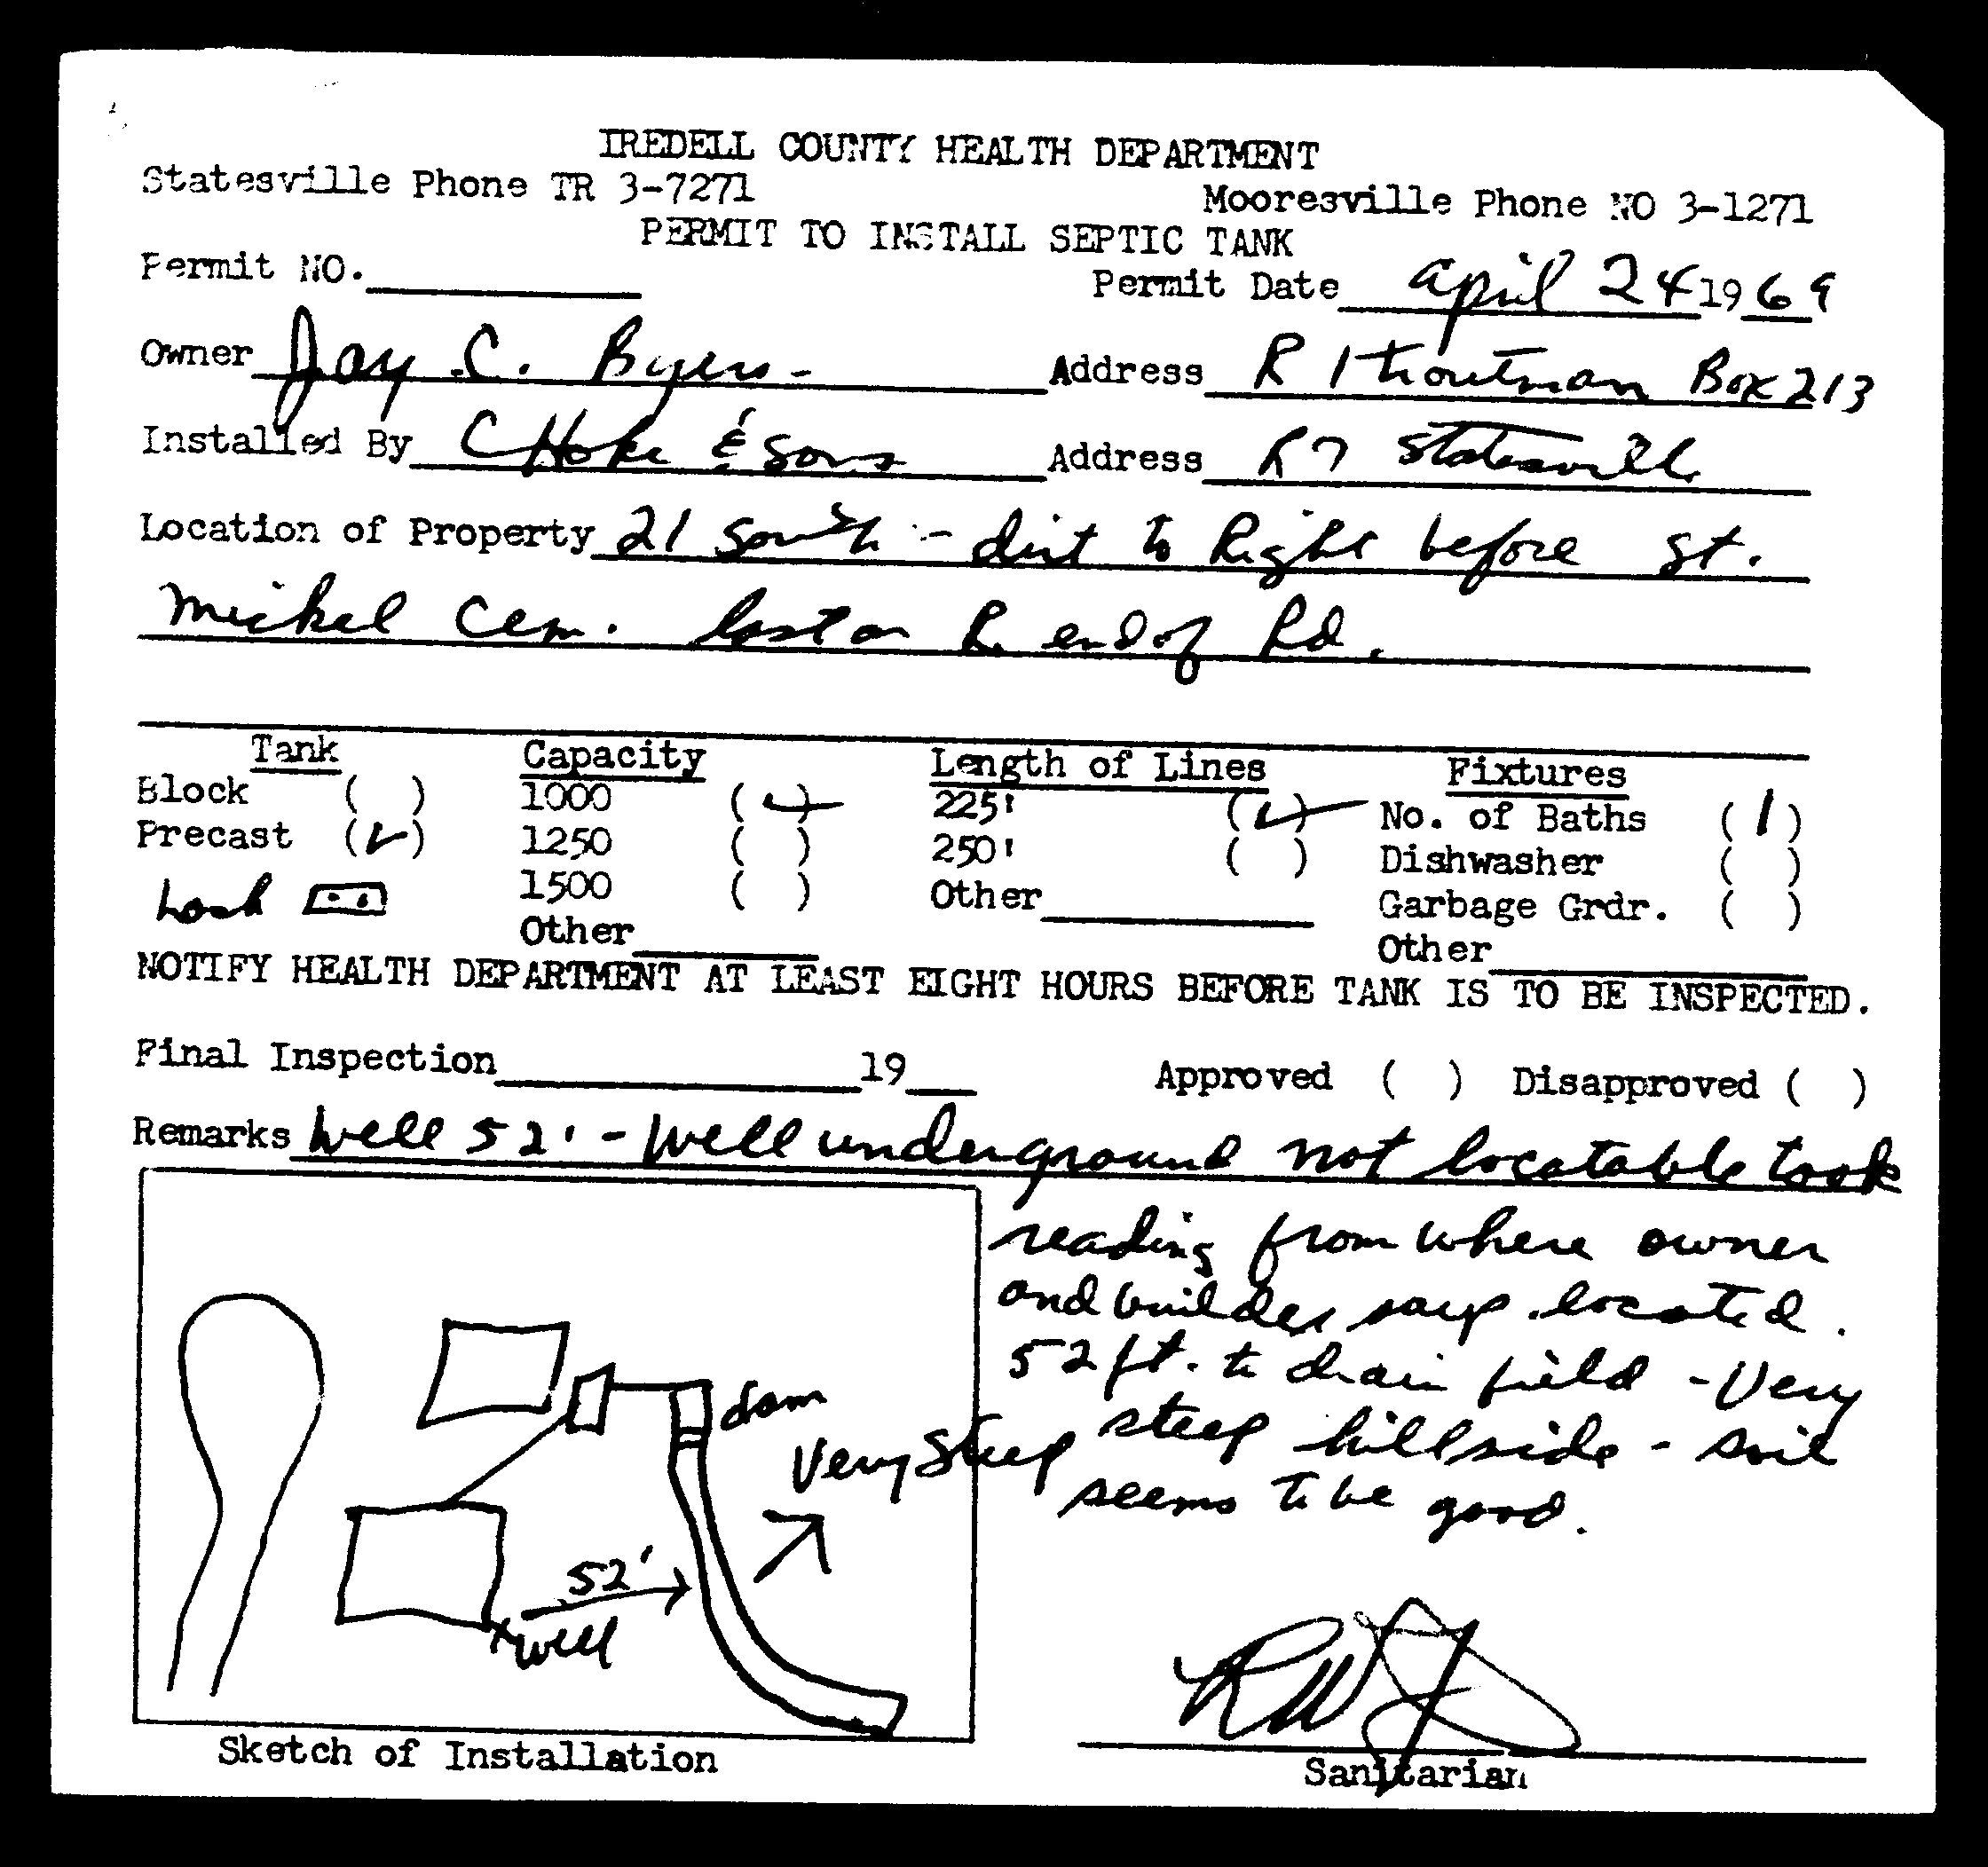 IREDELL COUNTY HEALTH DEPARTMENT
Statesville Phone TR 3-7271 Mooresville Phone NO 3-1271
PERMIT TO INSTALL SEPTIC TANK
Permit NO. Permit Date April 24 1969
Owner Jay C. Byers Address R 1 Troutman Box 213
Installed By C Hoke & Sons Address R7 Statesville
Location of Property 21 South - dirt to Right before St.
Mickel Cem. last on R. end of Rd.
Tank Capacity Length of Lines Fixtures
Block ( ) 1000 (✓) 225' (✓) No. of Baths (1)
Precast (✓) 1250 ( ) 250' ( ) Dishwasher ( )
1500 ( ) Other Garbage Grdr. ( )
Other Other
NOTIFY HEALTH DEPARTMENT AT LEAST EIGHT HOURS BEFORE TANK IS TO BE INSPECTED.
Final Inspection 19 Approved ( ) Disapproved ( )
Remarks Well 52' - Well underground not locatable took
reading from where owner
and builder says located.
52 ft. to drain field - Very
steep hillside - soil
seems to be good.
dam
Very Steep
52'
x well
Sketch of Installation
Sanitarian